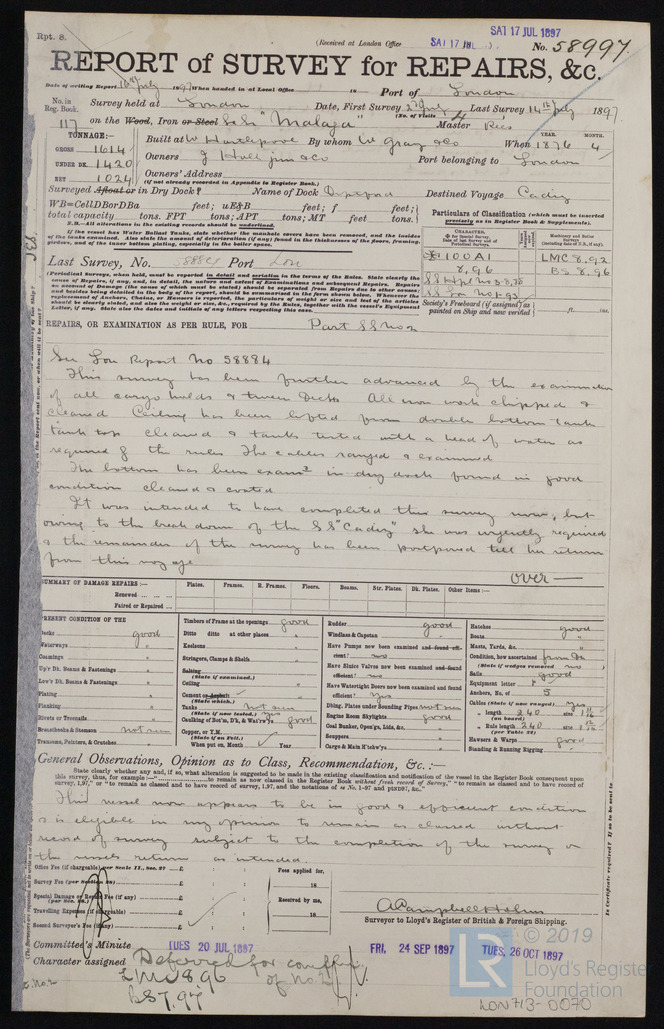 Rpt. 8.
(Received at London Office SAT 17 JUL
SAT 17 JUL 1897
No. 58997.
REPORT of SURVEY for REPAIRS, &c.
Date of writing Report 16th July 1897 When handed in at Local Office 18 Port of London
No. in Reg. Book. Survey held at London Date, First Survey July Last Survey 14th July 1897
(No. of Visits 4)
117 on the Wood, Iron or Steel "Malaga" Master Rees
TONNAGE:—
GROSS 1614
UNDER DK. 1420
NET 1024
Built at W Hartlepool By whom W Gray & Co When 1876 4
YEAR. MONTH.
Owners J Hall junr & Co Port belonging to London
Owners' Address
(if not already recorded in Appendix to Register Book.)
Surveyed Afloat or in Dry Dock? Name of Dock Deptford Destined Voyage Cadiz
WB=CellDBorDBa feet; uE&B feet; f feet;
total capacity tons. FPT tons; APT tons; MT feet tons.
N.B.—All alterations in the existing records should be underlined.
If the vessel has Water Ballast Tanks, state whether the manhole covers have been removed, and the insides
of the tanks examined. Also state the amount of deterioration (if any) found in the thicknesses of the floors, framing,
girders, and of the inner bottom plating, especially in the boiler space.
Particulars of Classification (which must be inserted
precisely as in Register Book & Supplements).
100A1
8,96
LMC 8,92
BS 8,96
Society's Freeboard (if assigned) as
painted on Ship and now verified ft. ins.
Last Survey, No. 58884 Port Lon
REPAIRS, OR EXAMINATION AS PER RULE, FOR Part SS No 2
See Lon Report No 58884
This survey has been further advanced by the examination
of all cargo holds & tween Decks All iron work chipped &
cleaned Ceiling has been lifted from double bottom tanks
tank top cleaned & tanks tested with a head of water as
required by the rules The cables ranged & examined
The bottom has been examd in dry dock found in good
condition cleaned & coated
It was intended to have completed this survey now, but
owing to the break down of the SS "Cadiz" she was urgently required
& the remainder of the survey has been postponed till her return
from this voyage
over—
SUMMARY OF DAMAGE REPAIRS:—
Plates. Frames. R. Frames. Floors. Beams. Str. Plates. Dk. Plates. Other Items:—
Renewed
Faired or Repaired
PRESENT CONDITION OF THE
Decks good
Waterways "
Coamings "
Up'r Dk. Beams & Fastenings "
Low'r Dk. Beams & Fastenings "
Plating "
Planking
Rivets or Treenails
Breasthooks & Stemson not seen
Transoms, Pointers, & Crutches
Timbers of Frame at the openings good
Ditto ditto at other places "
Keelsons "
Stringers, Clamps & Shelfs "
Salting
(State if examined.)
Ceiling "
Cement or Asphalt
(State which.)
Tanks
(State if now tested.) Yes
Caulking of Bot'm, Dk, & Wat'rw'ys good
Copper, or Y.M.
(State if on Felt.)
When put on, Month Year
Rudder good
Windlass & Capstan "
Have Pumps now been examined and found efficient? no
Have Sluice Valves now been examined and found
efficient? no
Have Watertight Doors now been examined and found
efficient? Yes
Dbling. Plates under Sounding Pipes not seen
Engine Room Skylights good
Coal Bunker, Open'gs, Lids, &c. "
Scuppers "
Cargo & Main H'tchw'ys "
Hatches good
Boats "
Masts, Yards, &c. "
Condition, how ascertained from Dk
(State if wedges removed no)
Sails good
Equipment letter
Anchors, No. of 5
Cables (State if now ranged) Yes
" length 240 size
(on board)
" Rule length 240 size
(per Table 22)
Hawsers & Warps Good
Standing & Running Rigging "
General Observations, Opinion as to Class, Recommendation, &c.:—
State clearly whether any and, if so, what alteration is suggested to be made in the existing classification and notification of the vessel in the Register Book consequent upon
This vessel now appears to be in good & efficient condition
& is eligible in my opinion to remain as classed without
record of survey subject to the completion of the survey on
the vessels return as intended.
Office Fee (if chargeable) per Scale II., Sec. 27 £ : :
Survey Fee (per Section 28) £ : :
Special Damage or Repair Fee (if any)
(per Sec. 28.) £ : :
Travelling Expenses (if chargeable) £ : :
Second Surveyor's Fee (if any) £ : :
Fees applied for,
18
Received by me,
18
A Campbell Holms
Surveyor to Lloyd's Register of British & Foreign Shipping.
Committee's Minute TUES 20 JUL 1897
FRI, 24 SEP 1897
TUES, 26 OCT 1897
Character assigned Deferred for compln
of No. 2
LMC 8 96
BS 7.97
© 2019
LR
Lloyd's Register
Foundation
LON713-0070